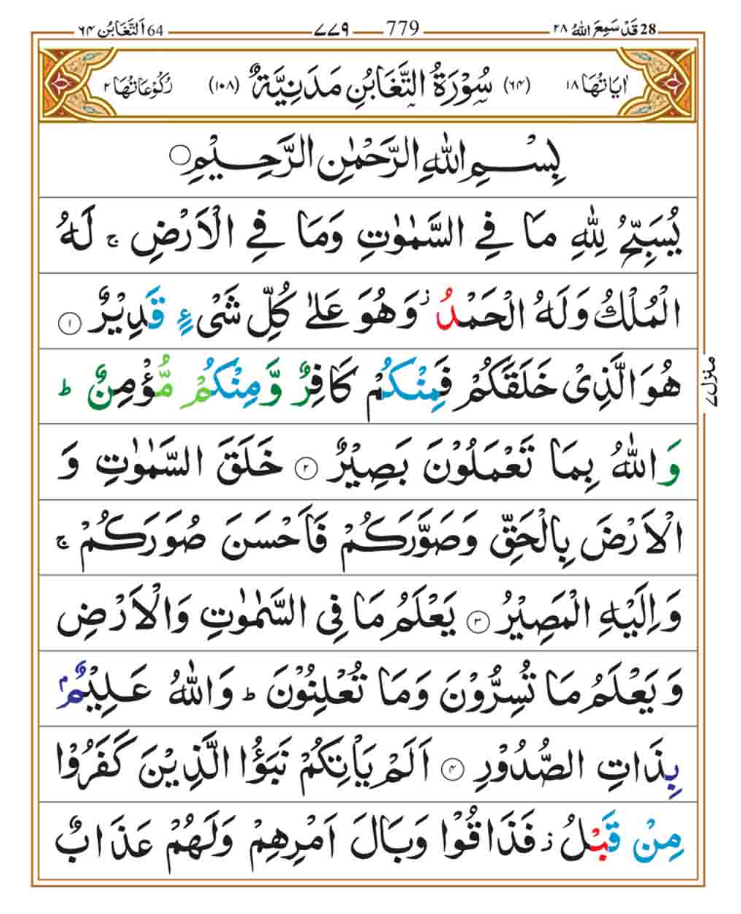 28 قَدْ سَمِعَ اللّٰهُ ٢٨ 779 ٧٧٩ 64 اَلتَّغَابُن ٦٤
اٰيَاتُهَا ١٨ (٦٤) سُوْرَةُ التَّغَابُنِ مَدَنِيَّةٌ (١٠٨) رُكُوْعَاتُهَا ٢
بِسْمِ اللّٰهِ الرَّحْمٰنِ الرَّحِيْمِ
يُسَبِّحُ لِلّٰهِ مَا فِي السَّمٰوٰتِ وَمَا فِي الْاَرْضِ ۚ لَهُ
الْمُلْكُ وَلَهُ الْحَمْدُ ؗ وَهُوَ عَلٰى كُلِّ شَیْءٍ قَدِيْرٌ ١
هُوَ الَّذِیْ خَلَقَكُمْ فَمِنْكُمْ كَافِرٌ وَّمِنْكُمْ مُّؤْمِنٌ ؕ
وَاللّٰهُ بِمَا تَعْمَلُوْنَ بَصِيْرٌ ٢ خَلَقَ السَّمٰوٰتِ وَ
الْاَرْضَ بِالْحَقِّ وَصَوَّرَكُمْ فَاَحْسَنَ صُوَرَكُمْ ۚ
وَاِلَيْهِ الْمَصِيْرُ ٣ يَعْلَمُ مَا فِی السَّمٰوٰتِ وَالْاَرْضِ
وَيَعْلَمُ مَا تُسِرُّوْنَ وَمَا تُعْلِنُوْنَ ؕ وَاللّٰهُ عَلِيْمٌۢ
بِذَاتِ الصُّدُوْرِ ٤ اَلَمْ يَاْتِكُمْ نَبَؤُا الَّذِيْنَ كَفَرُوْا
مِنْ قَبْلُ ؗ فَذَاقُوْا وَبَالَ اَمْرِهِمْ وَلَهُمْ عَذَابٌ
منزل ٧